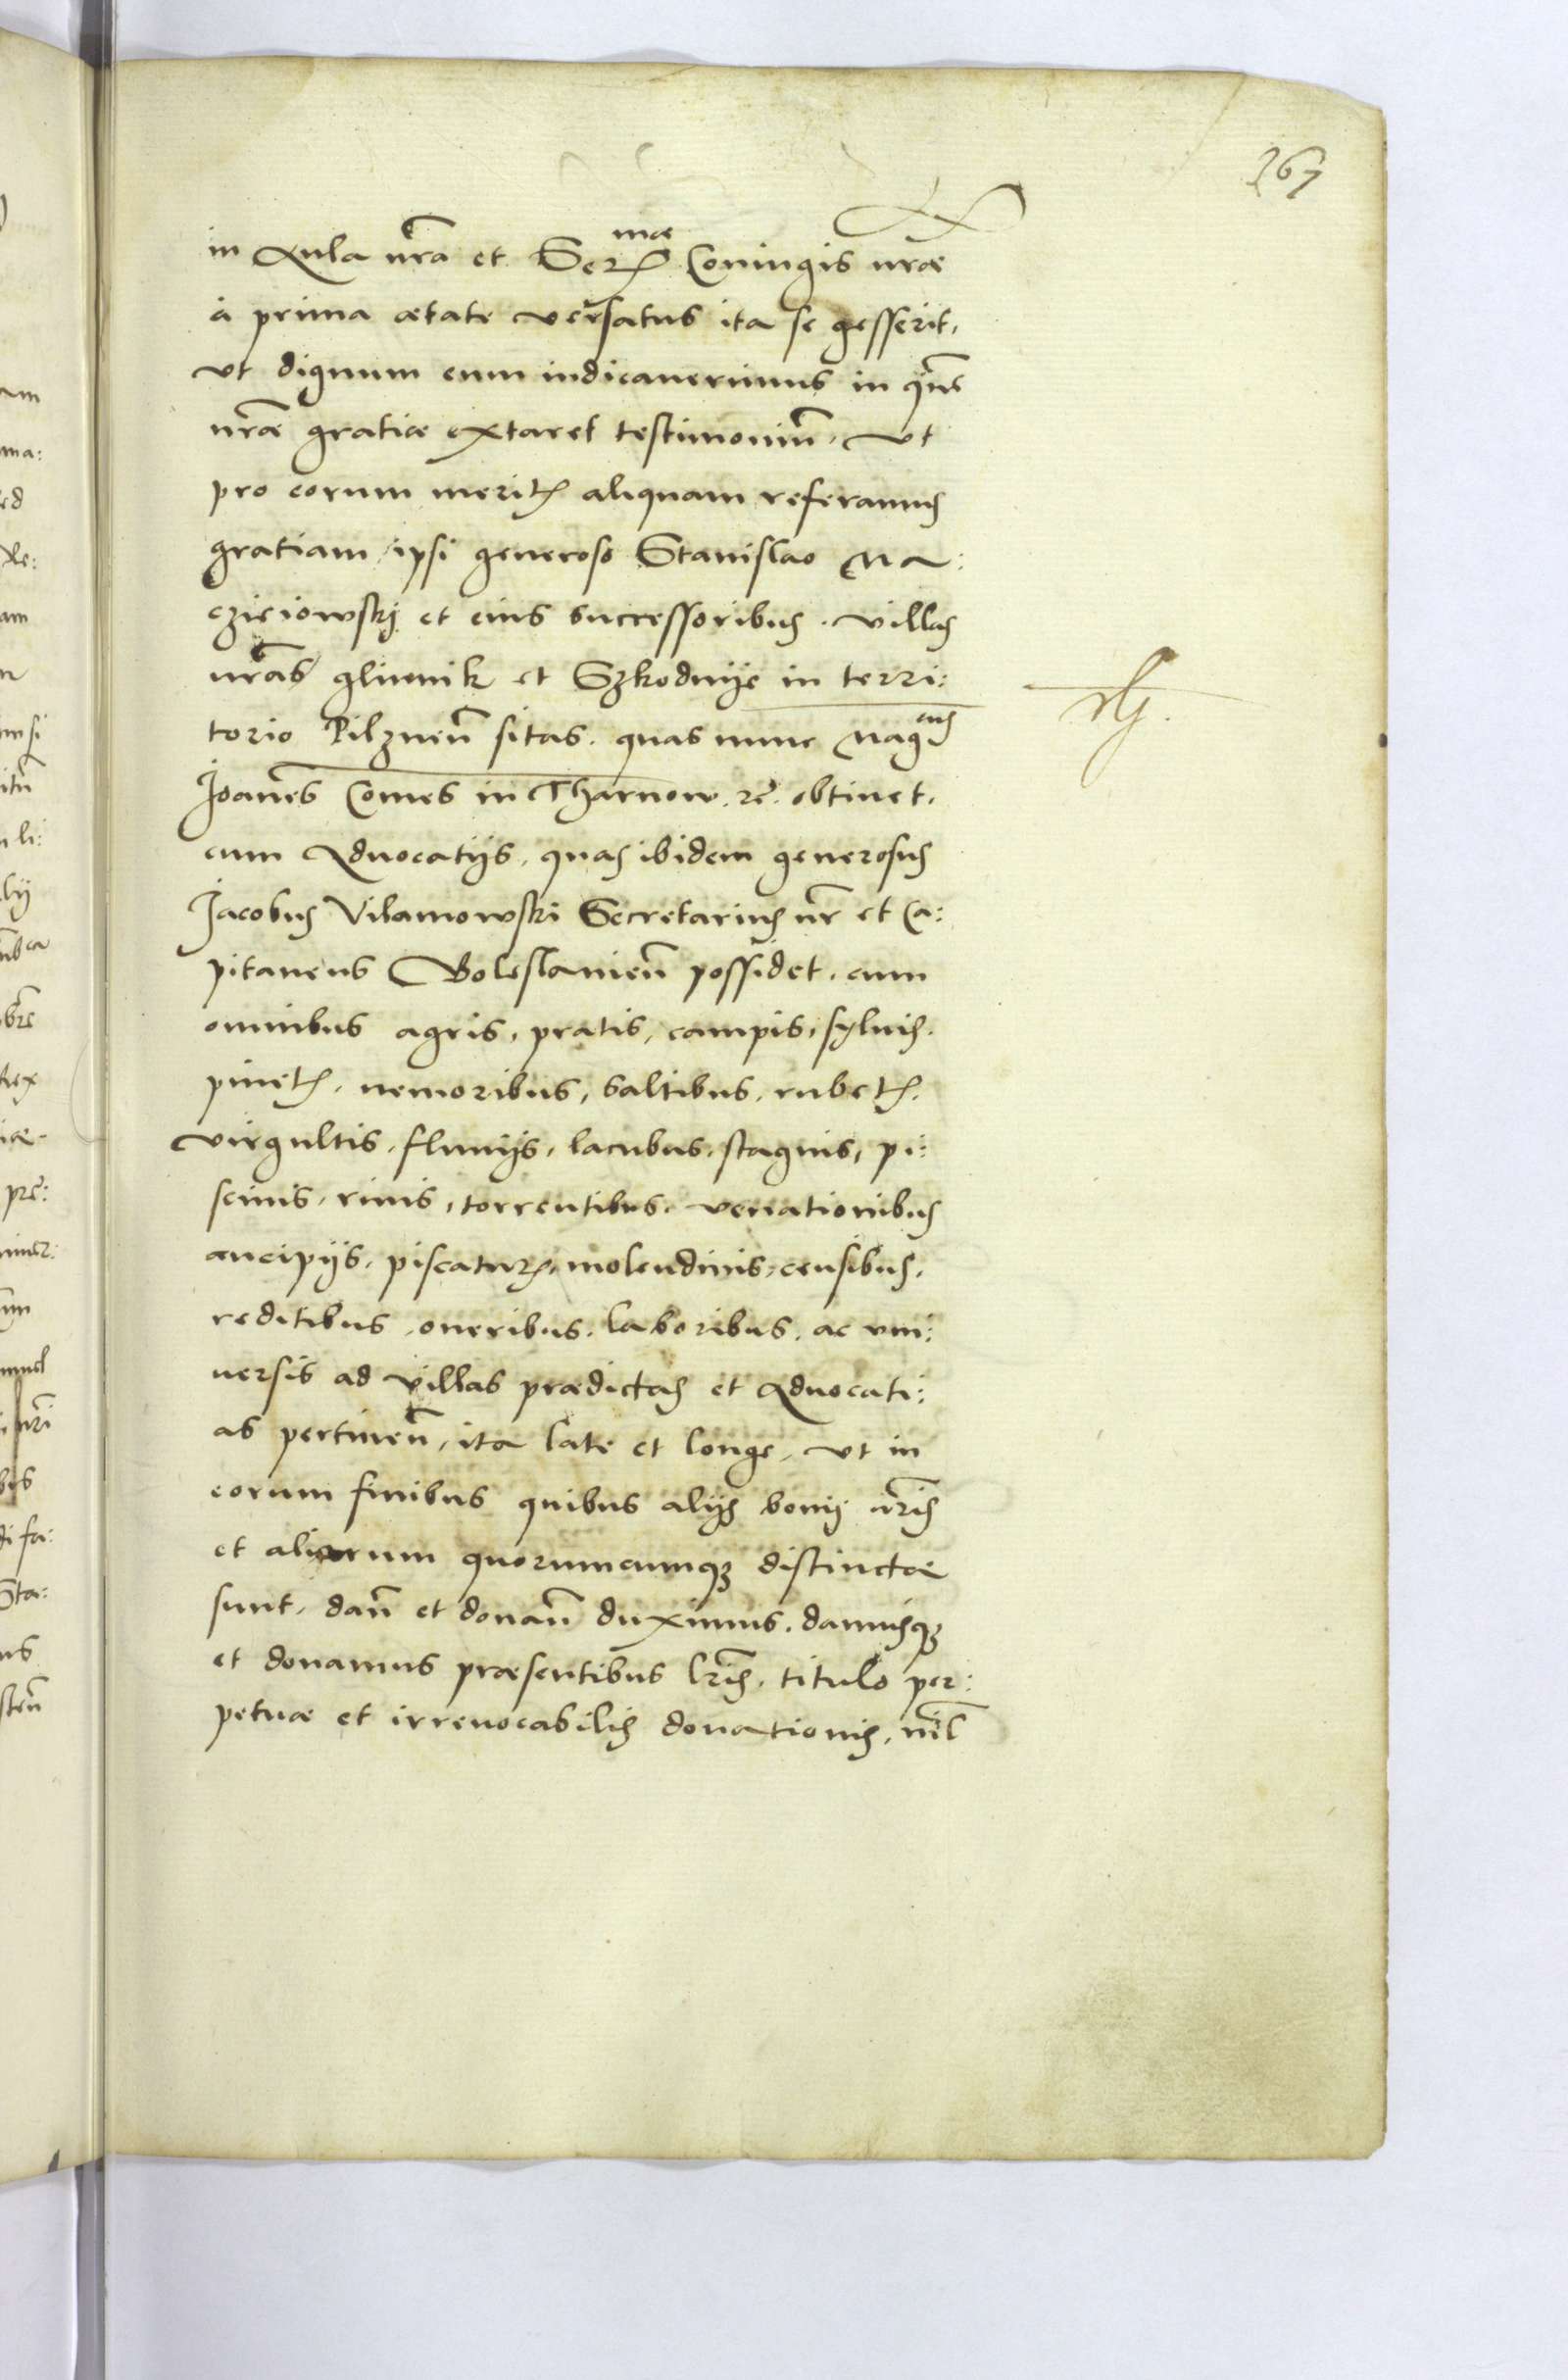 267
in Aula nr̃a et Serᵐᵃᵉ Coniugis nr̃ae
à prima aetate versatus ita se gesserit,
vt dignum eum iudicauerimus in quẽ
nr̃ae gratiae extaret testimoniũ. Vt
pro eorum meritis aliquam referamus
gratiam ipsi generoso Stanislao Ma:
cziciowskÿ et eius successoribus. villas
nr̃as gliunik et Szkodnÿe in terri:
torio Pilzneñ sitas. quas nunc Magᶜᵘˢ
Joanẽs Comes in Tharnow. rc̃. obtinet.
cum Aduocatijs, quas ibidem generosus
Jacobus Vilamowski Secretarius nr̃ et Ca:
pitaneus Boleslanieñ possidet. cum
omnibus agris, pratis, campis, syluis.
pinetis, nemoribus, saltibus, rubetis.
virgultis, fluuijs, lacubus, stagnis, pi:
scinis, riuis, torrentibus. venationibus
aucipijs, piscaturis, molendinis, censibus,
reditibus, oneribus, laboribus, ac vni:
uersis ad villas praedictas et Aduocati:
as pertineñ, ita late et longe, vt in
eorum finibus quibus alijs bonis nr̃is
et aliorum quorumcumque distinctae
sunt. dañ et donañ duximus. damusque
et donamus praesentibus lr̃is, titulo per:
petuae et irreuocabilis donationis, nil̃